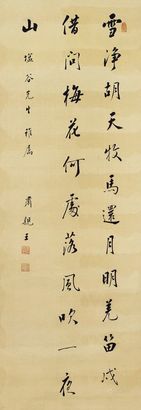 雪淨胡天牧馬還月明羌笛戍
借問梅花何處落風吹一夜
山
塩谷先生雅属
肅親王